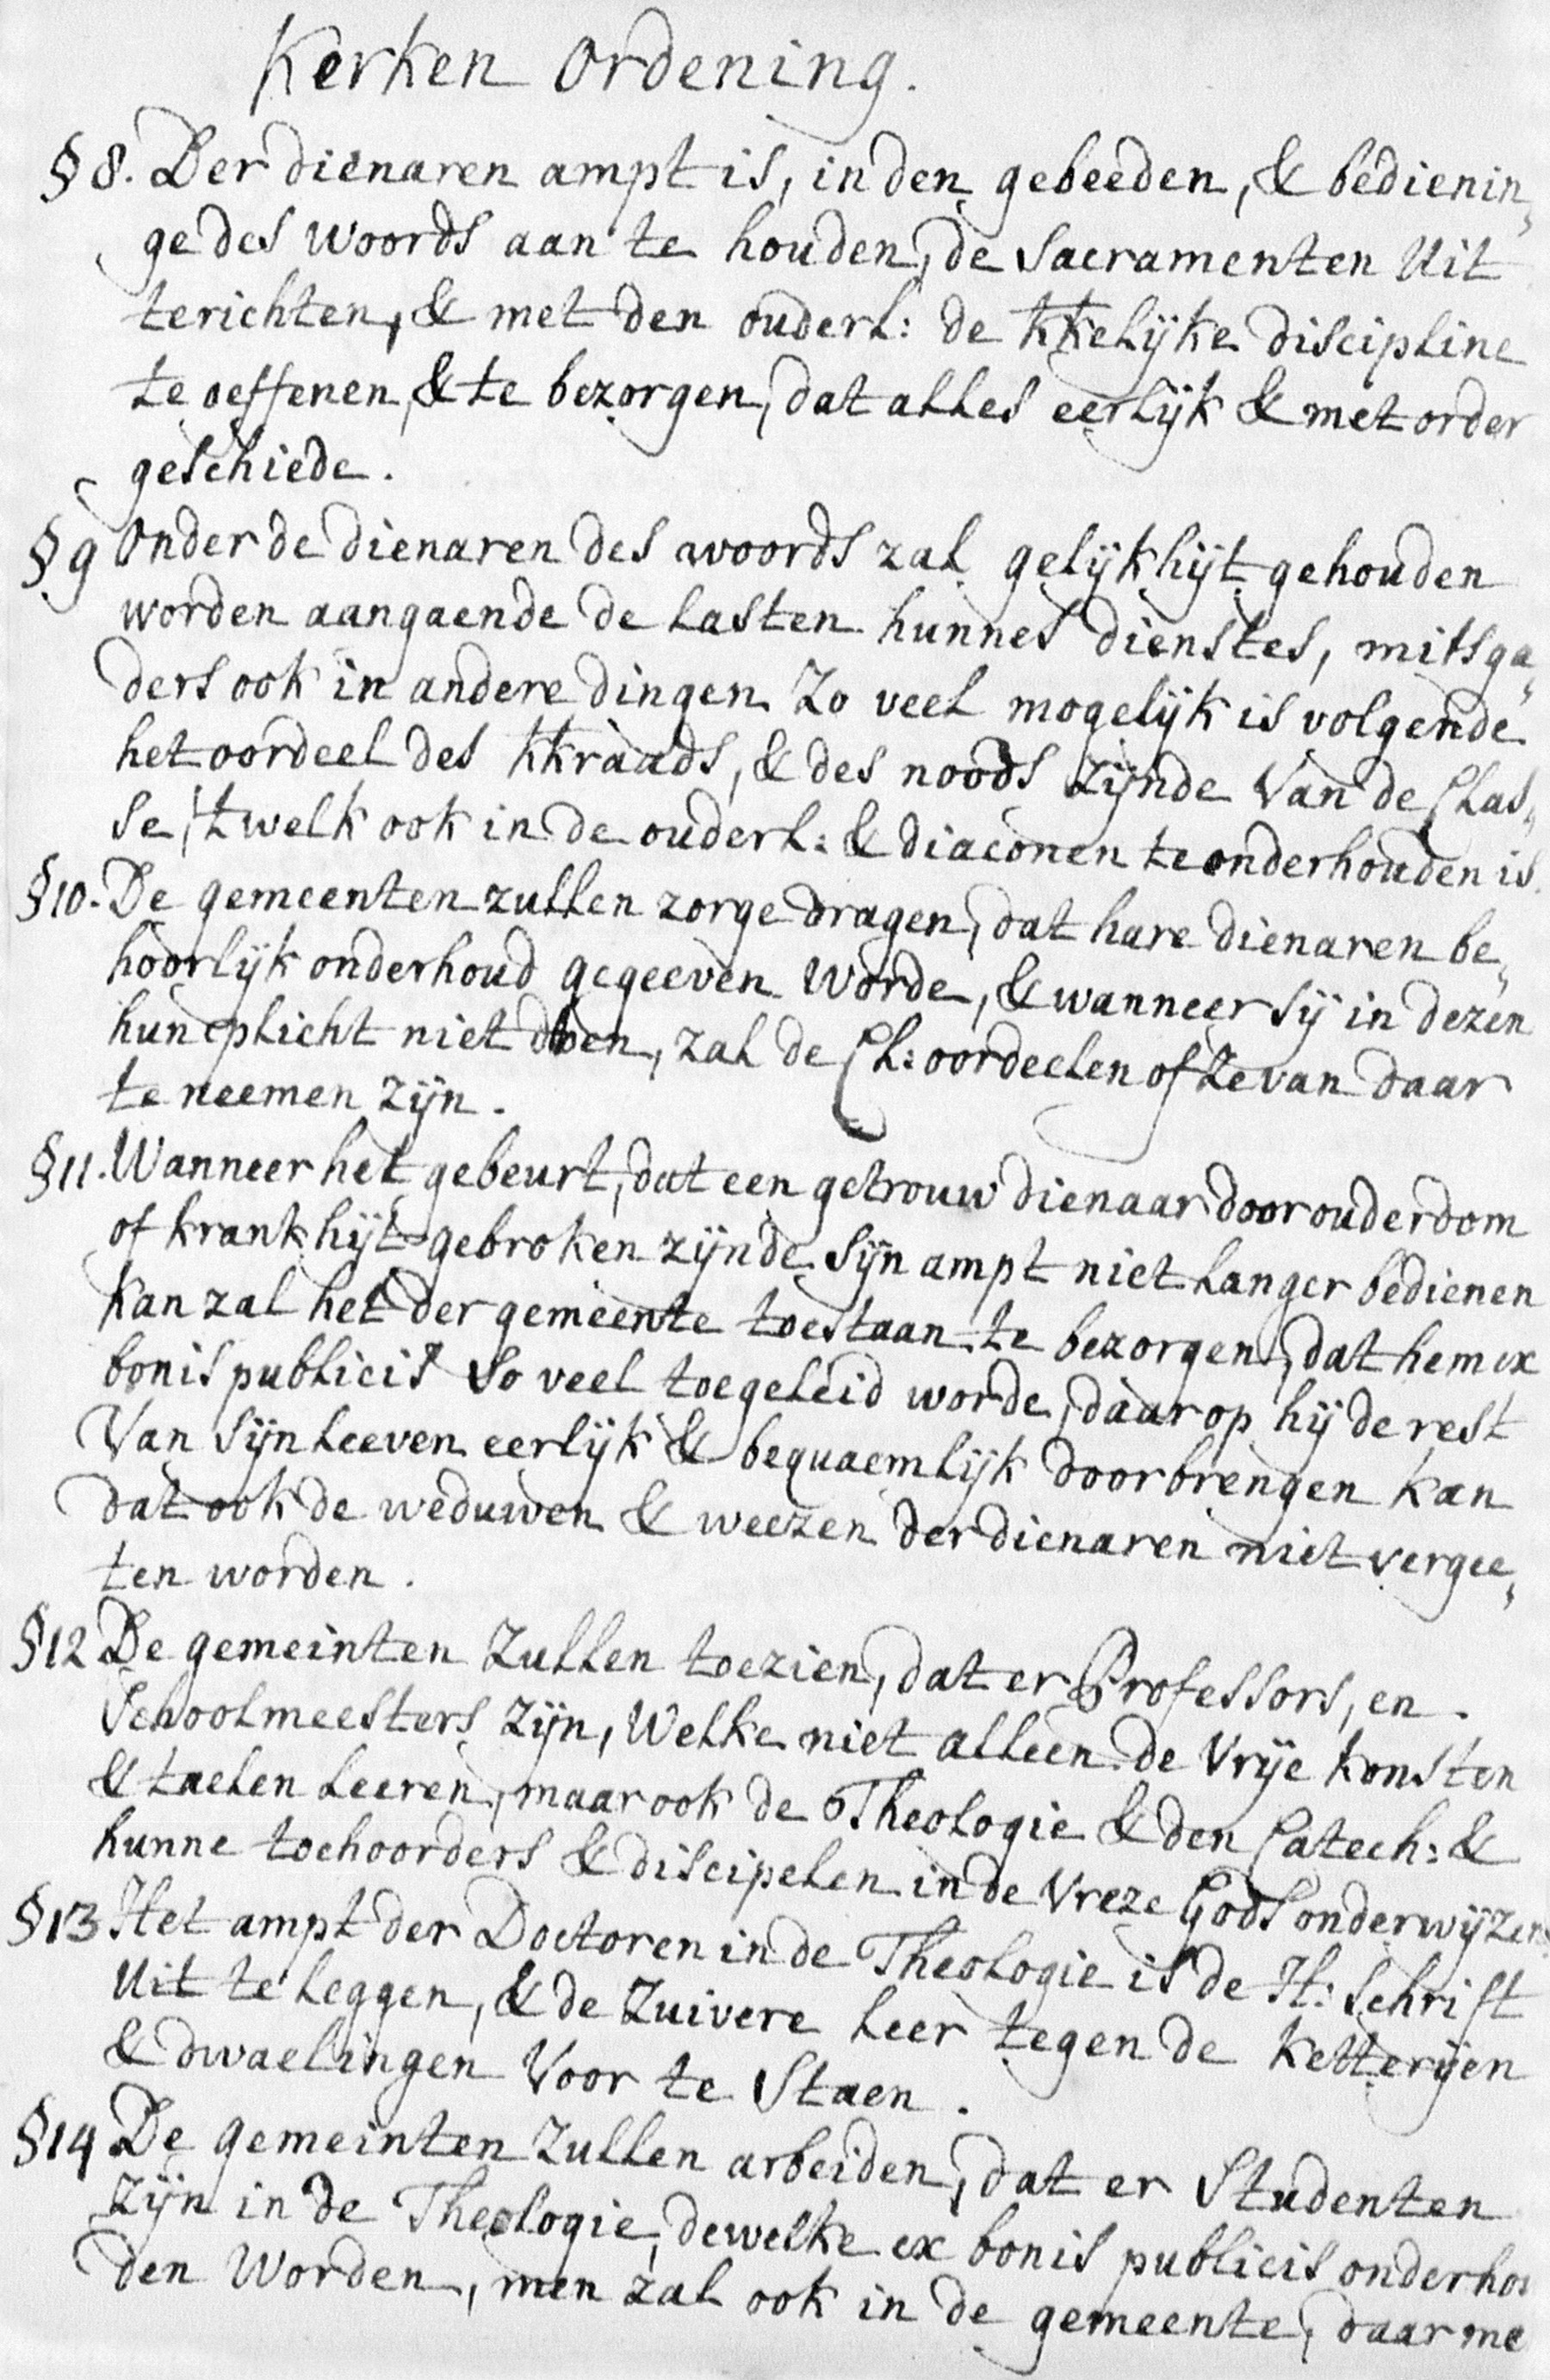 Kerken Ordening.
§ 8. Der dienaren ampt is, in den gebeeden, & bedienin„
ge des woords aan te houden, de Sacramenten Uit
terichten, & met den ouderl: de kkelijke discipline
te oeffenen, & te bezorgen, dat alles eerlijk & met order
geschiede.
§ 9 Onder de dienaren des woords zal gelijkhijt gehouden
worden aangaende de lasten hunnes dienstes, mitsga„
ders ook in andere dingen Zo veel mogelijk is volgende
het oordeel des kkraads, & des noods zijnde Van de Clas„
se, 't welk ook in de ouderl: & diaconen te onderhouden is.
§ 10. De gemeenten zullen zorge dragen, dat hare dienaren be„
hoorlijk onderhoud gegeeven Worde, & wanneer sij in dezen
hun eplicht niet doen, zal de Cl: oordeelen of Ze van daar
te neemen zijn.
§ 11. Wanneer het gebeurt, dat een getrouw dienaar door ouderdom
of krankhijt gebroken zijnde Sijn ampt niet langer bedienen
kan zal het der gemeente toestaan te bezorgen, dat hem ex
bonis publicis So veel toegeleid worde, daar op hij de rest
Van Sijn leeven eerlijk & bequaemlijk doorbrengen kan
dat ook de weduwen & weezen der dienaren niet vergee„
ten worden.
§ 12 De gemeinten Zullen toezien, dat er Professors, en
Schoolmeesters zijn, Welke niet alleen de Vrije konsten
& taelen leeren, maar ook de Theologie & den Catech: &
hunne toehoorders & discipelen in de Vreze Gods onderwijzen.
§ 13 Het ampt der Doctoren in de Theologie is de H: Schrift
Uit te leggen, & de Zuivere leer tegen de ketterijen
& dwaelingen Voor te Staen.
§ 14 De gemeinten Zullen arbeiden, dat er Studenten
Zijn in de Theologie, dewelke ex bonis publicis onderhou
den Worden, men zal ook in de gemeente, daar me